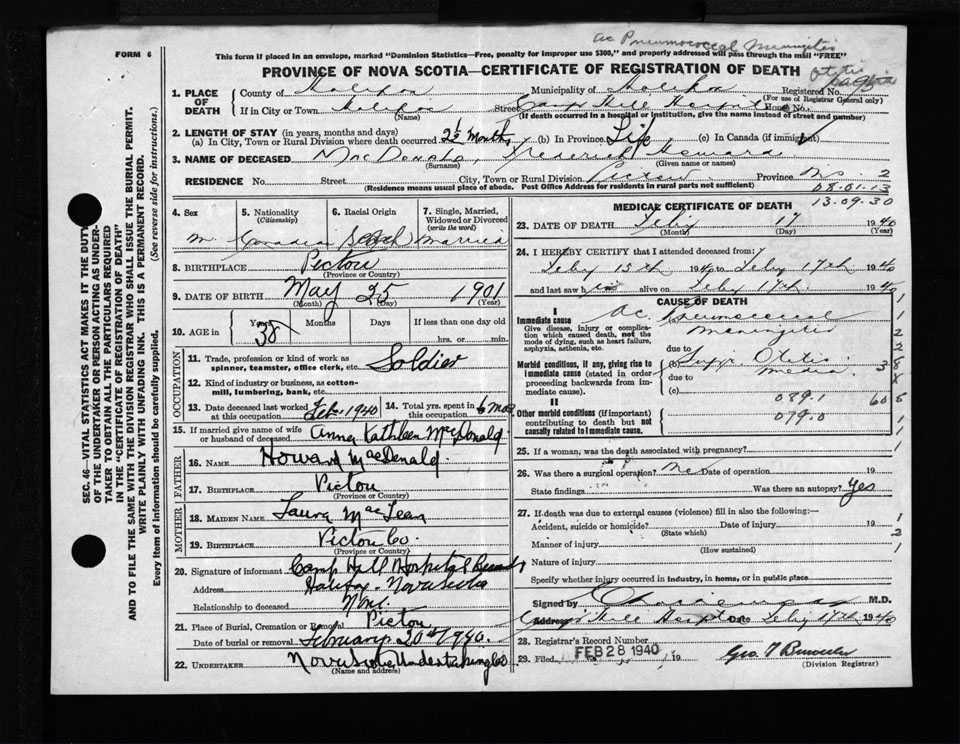 ac Pneumococcal Meningitis
FORM 6
This form if placed in an envelope, marked "Dominion Statistics—Free, penalty for improper use $300," and properly addressed will pass through the mail "FREE"
Otitis Media
PROVINCE OF NOVA SCOTIA—CERTIFICATE OF REGISTRATION OF DEATH
1. PLACE OF DEATH
County of Halifax Municipality of Halifax Registered No.
(For use of Registrar General only)
If in City or Town Halifax (Name) Street Camp Hill Hospital House No.
(If death occurred in a hospital or institution, give the name instead of street and number)
2. LENGTH OF STAY (in years, months and days)
(a) In City, Town or Rural Division where death occurred 2½ Months (b) In Province Life (c) In Canada (if immigrant) ✓
3. NAME OF DECEASED MacDonald, Frederick Howard
(Surname) (Given name or names)
RESIDENCE No. Street City, Town or Rural Division Pictou Province N.S. 2
(Residence means usual place of abode. Post Office Address for residents in rural parts not sufficient)
08.01.13
13.09.30
4. Sex M.
5. Nationality (Citizenship) Canadian
6. Racial Origin Scotch
7. Single, Married, Widowed or Divorced (write the word) Married
8. BIRTHPLACE Pictou
(Province or Country)
9. DATE OF BIRTH May 25 1901
(Month) (Day) (Year)
10. AGE in Years Months Days If less than one day old
38 hrs. or min.
OCCUPATION
11. Trade, profession or kind of work as spinner, teamster, office clerk, etc. Soldier
12. Kind of industry or business, as cotton-mill, lumbering, bank, etc.
13. Date deceased last worked at this occupation Feb. 1940
14. Total yrs. spent in this occupation 6 mos
15. If married give name of wife or husband of deceased Anna Kathleen McDonald
FATHER
16. Name Howard MacDonald
17. Birthplace Pictou
(Province or Country)
MOTHER
18. Maiden Name Laura MacLean
19. Birthplace Pictou Co.
(Province or Country)
20. Signature of informant Camp Hill Hospital Records
Address Halifax, Nova Scotia
Relationship to deceased None
21. Place of Burial, Cremation or Removal Pictou
Date of burial or removal February 20th 1940.
22. UNDERTAKER Nova Scotia Undertaking Co
(Name and address)
MEDICAL CERTIFICATE OF DEATH
23. DATE OF DEATH Feby 17 1940
(Month) (Day) (Year)
24. I HEREBY CERTIFY that I attended deceased from
Feby 15th 1940 to Feby 17th 1940
and last saw him alive on Feby 17th 1940
CAUSE OF DEATH
I
Immediate cause
Give disease, injury or complication which caused death, not the mode of dying, such as heart failure, asphyxia, asthenia, etc.
ac. Pneumococcal Meningitis
due to
Morbid conditions, if any, giving rise to immediate cause (stated in order proceeding backwards from immediate cause).
(b) Supp. Otitis Media
due to
(c)
089.1
079.0
II
Other morbid conditions (important) contributing to death but not causally related to immediate cause.
25. If a woman, was the death associated with pregnancy?
26. Was there a surgical operation? No Date of operation 19
State findings Was there an autopsy? Yes
27. If death was due to external causes (violence) fill in also the following:—
Accident, suicide or homicide? Date of injury 19
(State which)
Manner of injury
(How sustained)
Nature of injury
Specify whether injury occurred in industry, in home, or in public place
Signed by M.D.
Address Camp Hill Hospital Date Feby 17th 1940
28. Registrar's Record Number
29. Filed FEB 28 1940 19
Geo. T
(Division Registrar)
SEC. 46—VITAL STATISTICS ACT MAKES IT THE DUTY
OF THE UNDERTAKER OR PERSON ACTING AS UNDER-
TAKER TO OBTAIN ALL THE PARTICULARS REQUIRED
IN THE "CERTIFICATE OF REGISTRATION OF DEATH"
AND TO FILE THE SAME WITH THE DIVISION REGISTRAR WHO SHALL ISSUE THE BURIAL PERMIT.
WRITE PLAINLY WITH UNFADING INK. THIS IS A PERMANENT RECORD.
Every item of information should be carefully supplied. (See reverse side for instructions.)